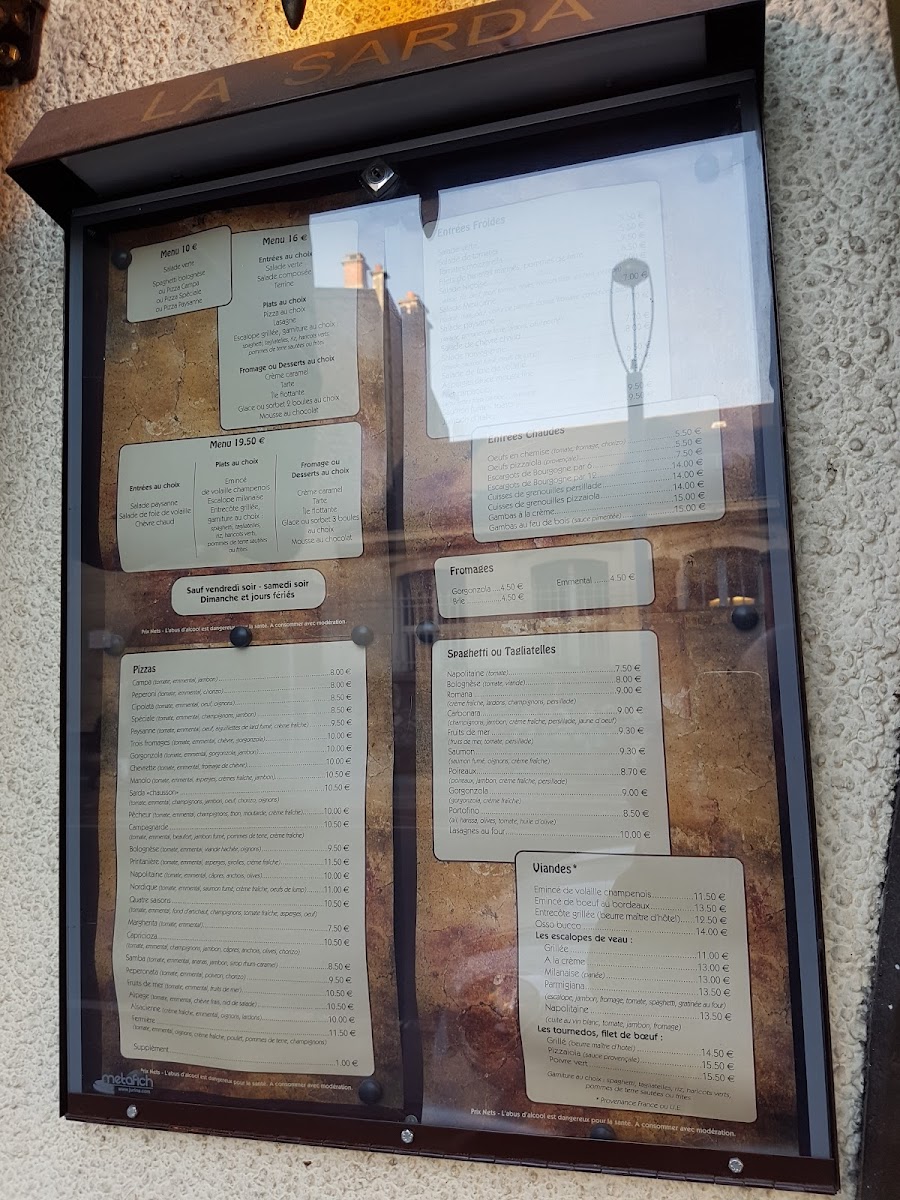 LA SARDA
Menu 10 €
Salade verte
Spaghetti bolognèse
ou Pizza Campa
ou Pizza Spéciale
ou Pizza Paysanne
Menu 16 €
Entrées au choix
Salade verte
Salade composée
Terrine
Plats au choix
Pizza au choix
Lasagne
Escalope grillée, garniture au choix
spaghetti, tagliatelles, riz, haricots verts,
pommes de terre sautées ou frites
Fromage ou Desserts au choix
Crème caramel
Tarte
Île flottante
Glace ou sorbet 2 boules au choix
Mousse au chocolat
Menu 19.50 €
Entrées au choix
Salade paysanne
Salade de foie de volaille
Chèvre chaud
Plats au choix
Emincé
de volaille champenois
Escalope milanaise
Entrecôte grillée,
garniture au choix
spaghetti, tagliatelles,
riz, haricots verts,
pommes de terre sautées
ou frites
Fromage ou
Desserts au choix
Crème caramel
Tarte
Île flottante
Glace ou sorbet 3 boules
au choix
Mousse au chocolat
Sauf vendredi soir - samedi soir
Dimanche et jours feriés
Prix Nets - L'abus d'alcool est dangereux pour la santé. A consommer avec modération.
Pizzas
Campa (tomate, emmental, jambon) 8.00 €
Peperoni (tomate, emmental, chorizo) 8.00 €
Cipolata (tomate, emmental, oeuf, oignons) 8.50 €
Spéciale (tomate, emmental, champignons, jambon) 8.50 €
Paysanne (tomate, emmental, oeuf, aiguillettes de lard fumé, crème fraîche) 9.50 €
Trois fromages (tomate, emmental, chèvre, gorgonzola) 10.00 €
Gorgonzola (tomate, emmental, gorgonzola, jambon) 10.00 €
Chevrette (tomate, emmental, fromage de chèvre) 10.00 €
Manolo (tomate, emmental, asperges, crèmes fraîche, jambon) 10.50 €
Sarda «chausson» 10.50 €
(tomate, emmental, champignons, jambon, oeuf, chorizo, oignons)
Pêcheur (tomate, emmental, champignons, thon, moutarde, crème fraîche) 10.00 €
Campagnarde 10.50 €
(tomate, emmental, beaufort, jambon fumé, pommes de terre, crème fraîche)
Bolognèse (tomate, emmental, viande hachée, oignons) 9.50 €
Printanière (tomate, emmental, asperges, girolles, crème fraîche) 11.50 €
Napolitaine (tomate, emmental, câpres, anchois, olives) 10.00 €
Nordique (tomate, emmental, saumon fumé, crème fraîche, oeufs de lump) 11.00 €
Quatre saisons 10.50 €
(tomate, emmental, fond d'artichaut, champignons, tomate fraîche, asperges, oeuf)
Margherita (tomate, emmental) 7.50 €
Capricioza 10.50 €
(tomate, emmental, champignons, jambon, câpres, anchois, olives, chorizo)
Samba (tomate, emmental, ananas, jambon, sirop rhum-caramel) 8.50 €
Peperonata (tomate, emmental, poivron, chorizo) 9.50 €
Fruits de mer (tomate, emmental, fruits de mer) 10.50 €
Alpage (tomate, emmental, chèvre frais, nid de salade) 10.50 €
Alsacienne (crème fraîche, emmental, oignons, lardons) 10.00 €
Fermière 11.50 €
(tomate, emmental, oignons, crème fraîche, poulet, pommes de terre, champignons)
Supplément 1.00 €
Prix Nets - L'abus d'alcool est dangereux pour la santé. A consommer avec modération.
metafich
Entrées Froides
5.50 €
Salade verte
7.00 €
9.50 €
9.50 €
Entrées Chaudes
Oeufs en chemise (tomate, fromage, chorizo) 5.50 €
Oeufs pizzaiola (provençale) 5.50 €
Escargots de Bourgogne par 6 7.50 €
Escargots de Bourgogne par 12 14.00 €
Cuisses de grenouilles persillade 14.00 €
Cuisses de grenouilles pizzaiola 14.00 €
Gambas à la crème 15.00 €
Gambas au feu de bois (sauce pimentée) 15.00 €
Fromages
Gorgonzola 4.50 €
Brie 4.50 €
Emmental 4.50 €
Spaghetti ou Tagliatelles
Napolitaine (tomate) 7.50 €
Bolognèse (tomate, viande) 8.00 €
Romana 9.00 €
(crème fraîche, lardons, champignons, persillade)
Carbonara 9.00 €
(champignons, jambon, crème fraîche, persillade, jaune d'oeuf)
Fruits de mer 9.30 €
(fruits de mer, tomate, persillade)
Saumon 9.30 €
(saumon fumé, oignons, crème fraîche)
Poireaux 8.70 €
(poireaux, jambon, crème fraîche, persillade)
Gorgonzola 9.00 €
(gorgonzola, crème fraîche)
Portofino 8.50 €
(ail, harissa, olives, tomate, huile d'olive)
Lasagnes au four 10.00 €
Viandes*
Emincé de volaille champenois 11.50 €
Emincé de boeuf au bordeaux 13.50 €
Entrecôte grillée (beurre maître d'hôtel) 12.50 €
Osso bucco 14.00 €
Les escalopes de veau :
Grillée 11.00 €
A la crème 13.00 €
Milanaise (panée) 13.00 €
Parmigiana 13.50 €
(escalope, jambon, fromage, tomate, spaghetti, gratinée au four)
Napolitaine 13.50 €
(cuite au vin blanc, tomate, jambon, fromage)
Les tournedos, filet de bœuf :
Grillé (beurre maître d'hôtel) 14.50 €
Pizzaiola (sauce provençale) 15.50 €
Poivre vert 15.50 €
Garniture au choix : spaghetti, tagliatelles, riz, haricots verts,
pommes de terre sautées ou frites
* Provenance France ou U.E.
Prix Nets - L'abus d'alcool est dangereux pour la santé. A consommer avec modération.